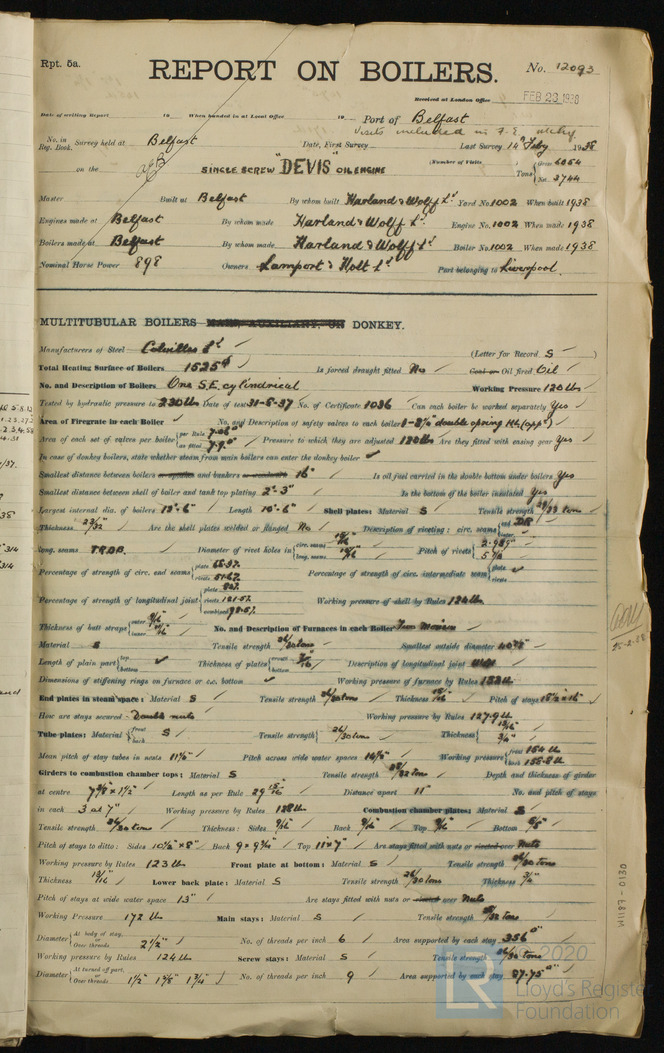 Rpt. 5a.
REPORT ON BOILERS.
No. 12093
Received at London Office FEB 23 1938
Date of writing Report 19 When handed in at Local Office 19 Port of Belfast
Visits included in F.E.
No. in Reg. Book. Survey held at Belfast Date, First Survey Last Survey 14th Feby 1938
on the SINGLE SCREW "DEVIS" OIL ENGINE (Number of Visits Tons Gross 6054 Net 3744
Master Built at Belfast By whom built Harland & Wolff Ld Yard No. 1002 When built 1938
Engines made at Belfast By whom made Harland & Wolff Ld Engine No. 1002 When made 1938
Boilers made at Belfast By whom made Harland & Wolff Ld Boiler No. 1002 When made 1938
Nominal Horse Power 898 Owners Lamport & Holt Ld Port belonging to Liverpool.
MULTITUBULAR BOILERS MAIN, AUXILIARY, OR DONKEY.
Manufacturers of Steel Colvilles Ld (Letter for Record S )
Total Heating Surface of Boilers 1525 Is forced draught fitted No Coal or Oil fired Oil
No. and Description of Boilers One S.E. cylindrical Working Pressure 120 lb
Tested by hydraulic pressure to 230 lb Date of test 31-5-37 No. of Certificate 1036 Can each boiler be worked separately Yes
Area of Firegrate in each Boiler No. and Description of safety valves to each boiler
Area of each set of valves per boiler per Rule 7.06 as fitted 7.9 Pressure to which they are adjusted 120 lb Are they fitted with easing gear Yes
In case of donkey boilers, state whether steam from main boilers can enter the donkey boiler ✓
Smallest distance between boilers or uptakes and bunkers or woodwork 16" Is oil fuel carried in the double bottom under boilers Yes
Smallest distance between shell of boiler and tank top plating 2'-3" Is the bottom of the boiler insulated Yes
Largest internal dia. of boilers 12'-6" Length 10'-6" Shell plates: Material S Tensile strength 29/33 tons
Thickness Are the shell plates welded or flanged No Description of riveting: circ. seams end DR inter.
long. seams T.R.D.B. Diameter of rivet holes in circ. seams long. seams Pitch of rivets
Percentage of strength of circ. end seams plate rivets Percentage of strength of circ. intermediate seam plate rivets
Percentage of strength of longitudinal joint plate rivets combined Working pressure of shell by Rules 124 lb
Thickness of butt straps outer inner No. and Description of Furnaces in each Boiler Two
Material S Tensile strength 26/30 tons Smallest outside diameter
Length of plain part top bottom Thickness of plates crown bottom Description of longitudinal joint
Dimensions of stiffening rings on furnace or c.c. bottom ✓ Working pressure of furnace by Rules
End plates in steam space: Material S Tensile strength 26/30 tons Thickness Pitch of stays
How are stays secured Double nuts Working pressure by Rules 127.9 lb
Tube plates: Material front back S Tensile strength 26/30 tons Thickness 3/4"
Mean pitch of stay tubes in nests Pitch across wide water spaces 14½" Working pressure front back
Girders to combustion chamber tops: Material S Tensile strength 28/32 tons Depth and thickness of girder
at centre 7¾" x 1½" Length as per Rule Distance apart 11" No. and pitch of stays
in each 3 at 7" Working pressure by Rules 128 lb Combustion chamber plates: Material S
Tensile strength 26/30 tons Thickness: Sides 9/16 Back 9/16 Top 9/16 Bottom 5/8"
Pitch of stays to ditto: Sides 10½" x 8" Back 9 x 9¾" Top 11" x 7" Are stays fitted with nuts or riveted over Nuts
Working pressure by Rules 123 lb Front plate at bottom: Material S Tensile strength 26/30 tons
Thickness 13/16 Lower back plate: Material S Tensile strength 26/30 tons Thickness 3/4"
Pitch of stays at wide water space 13" Are stays fitted with nuts or riveted over Nuts
Working Pressure 172 lb Main stays: Material S Tensile strength 28/32 tons
Diameter At body of stay, or Over threads 2½" No. of threads per inch 6 Area supported by each stay 356
Working pressure by Rules 124 lb Screw stays: Material S Tensile strength 26/30 tons
Diameter At turned off part, or Over threads 1½" 1⅝" 1¾" No. of threads per inch 9 Area supported by each stay 87.75
W1187-0130
© 2020
LR
Lloyd's Register
Foundation